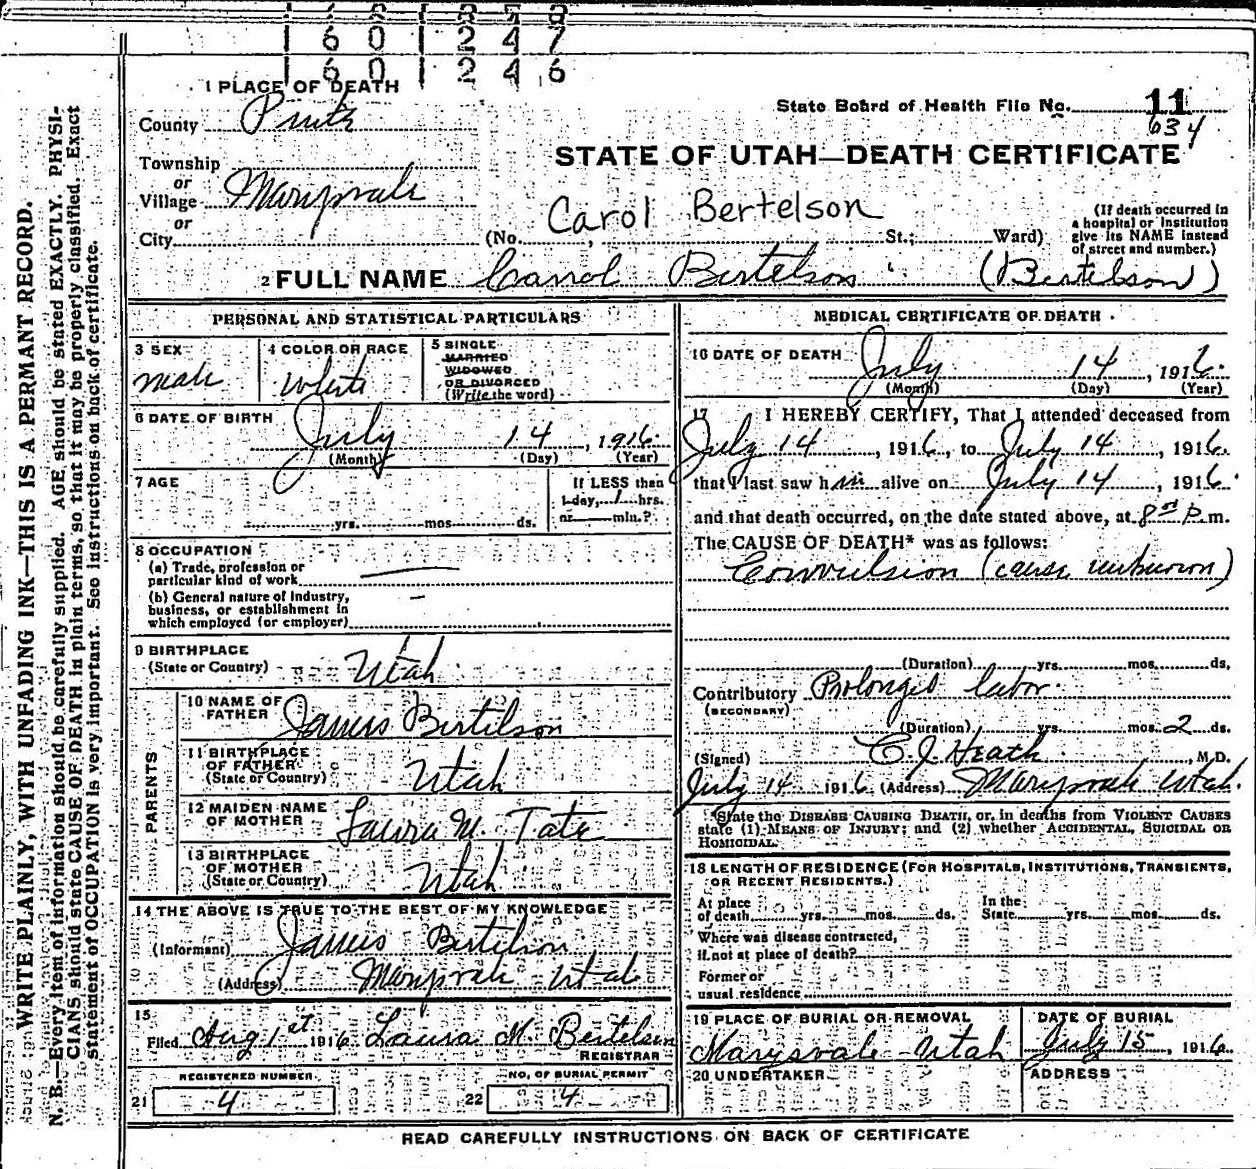 1 6 0 1 2 4 7
1 6 0 1 2 4 6
1 PLACE OF DEATH
County Piute
Township
or
Village Marysvale
or
City
State Board of Health File No. 11
634
STATE OF UTAH—DEATH CERTIFICATE
Carol Bertelson
(No. , St.; Ward)
(If death occurred in
a hospital or institution
give its NAME instead
of street and number.)
2 FULL NAME Carrol Bertelson (Bertelson)
PERSONAL AND STATISTICAL PARTICULARS
3 SEX
Male
4 COLOR OR RACE
White
5 SINGLE
MARRIED
WIDOWED
OR DIVORCED
(Write the word)
6 DATE OF BIRTH
July 14, 1916
(Month) (Day) (Year)
7 AGE
yrs. mos. ds.
If LESS than
1 day, 1 hrs.
or min.?
8 OCCUPATION
(a) Trade, profession or
particular kind of work
(b) General nature of industry,
business, or establishment in
which employed (or employer)
9 BIRTHPLACE
(State or Country) Utah
PARENTS
10 NAME OF
FATHER James Bertelson
11 BIRTHPLACE
OF FATHER
(State or Country) Utah
12 MAIDEN NAME
OF MOTHER Laura M. Tate
13 BIRTHPLACE
OF MOTHER
(State or Country) Utah
14 THE ABOVE IS TRUE TO THE BEST OF MY KNOWLEDGE
(Informant) James Bertelson
(Address) Marysvale Utah
15
Filed Aug 1st 1916 Laura M. Bertelsen
REGISTRAR
REGISTERED NUMBER
21 4
NO. OF BURIAL PERMIT
22 4
MEDICAL CERTIFICATE OF DEATH
16 DATE OF DEATH July 14, 1916.
(Month) (Day) (Year)
17 I HEREBY CERTIFY, That I attended deceased from
July 14, 1916, to July 14, 1916.
that I last saw him alive on July 14, 1916.
and that death occurred, on the date stated above, at 8 P.m.
The CAUSE OF DEATH* was as follows:
Convulsion (cause unknown)
(Duration) yrs. mos. ds.
Contributory Prolonged labor.
(SECONDARY)
(Duration) yrs. mos. 2 ds.
(Signed) C. J. Heath, M.D.
July 14 1916. (Address) Marysvale Utah.
*State the DISEASE CAUSING DEATH, or, in deaths from VIOLENT CAUSES
state (1) MEANS OF INJURY; and (2) whether ACCIDENTAL, SUICIDAL OR
HOMICIDAL.
18 LENGTH OF RESIDENCE (FOR HOSPITALS, INSTITUTIONS, TRANSIENTS,
OR RECENT RESIDENTS.)
At place
of death yrs. mos. ds.
In the
State yrs. mos. ds.
Where was disease contracted,
if not at place of death?
Former or
usual residence
19 PLACE OF BURIAL OR REMOVAL
Marysvale Utah
DATE OF BURIAL
July 15, 1916.
20 UNDERTAKER
ADDRESS
READ CAREFULLY INSTRUCTIONS ON BACK OF CERTIFICATE
WRITE PLAINLY, WITH UNFADING INK—THIS IS A PERMANT RECORD.
N. B.—Every item of information should be carefully supplied. AGE should be stated EXACTLY. PHYSI-
CIANS should state CAUSE OF DEATH in plain terms, so that it may be properly classified. Exact
statement of OCCUPATION is very important. See instructions on back of certificate.